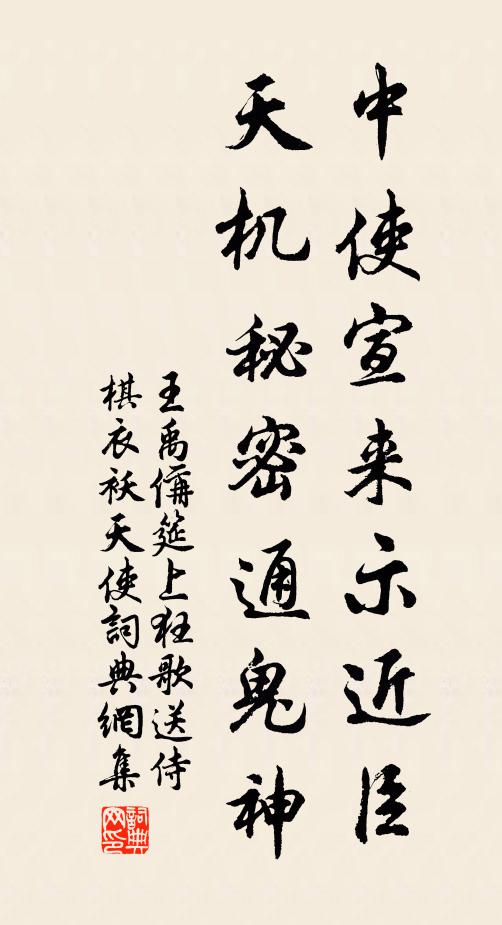 中使宣来示近臣
天机秘密通鬼神
王禹偁筵上狂歌送侍
棋衣袄天使詞典網集
詞典
网印